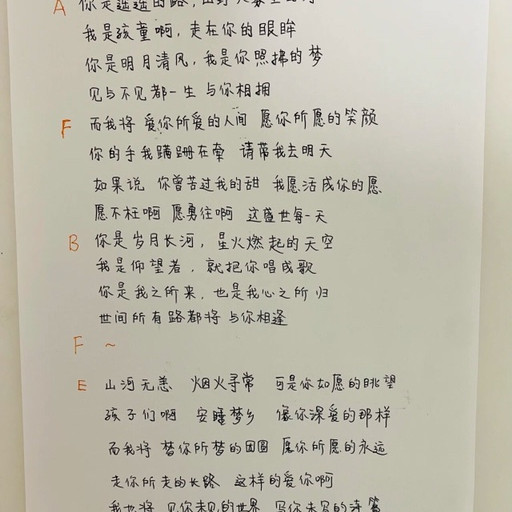 A 你是遥遥的路，山野大雾里的灯
我是孩童啊，走在你的眼眸
你是明月清风，我是你照拂的梦
见与不见都一生 与你相拥
F 而我将 爱你所爱的人间 愿你所愿的笑颜
你的手我蹒跚在牵 请带我去明天
如果说 你曾苦过我的甜 我愿活成你的愿
愿不枉啊 愿勇往啊 这盛世每一天
B 你是岁月长河，星火燃起的天空
我是仰望者，就把你唱成歌
你是我之所来，也是我心之所归
世间所有路都将 与你相逢
F ~
E 山河无恙 烟火寻常 可是你如愿的眺望
孩子们啊 安睡梦乡 像你深爱的那样
而我将 梦你所梦的团圆 愿你所愿的永远
走你所走的长路 这样的爱你啊
我也将 见你未见的世界 写你未写的诗篇